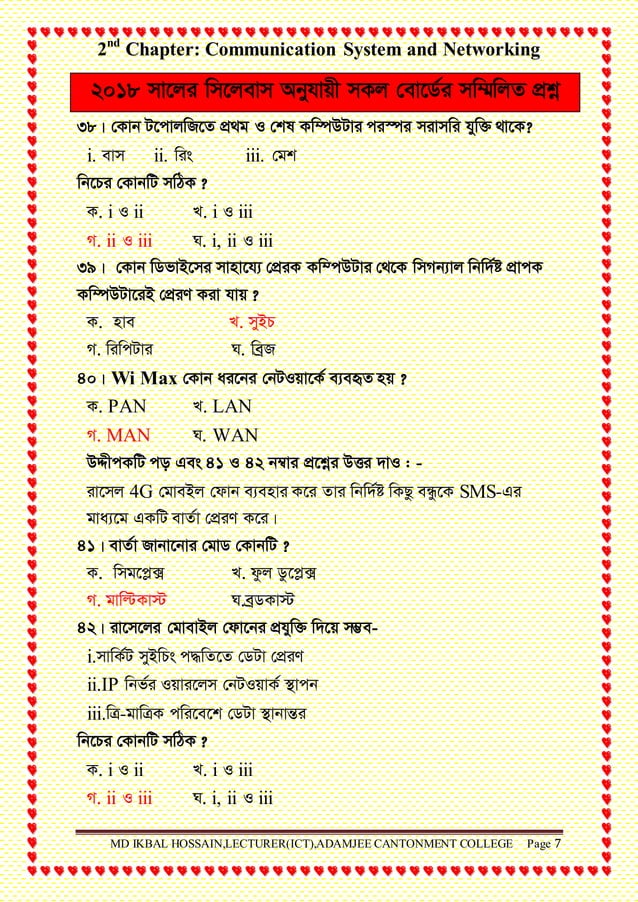 2nd Chapter: Communication System and Networking
২০১৮ সালের সিলেবাস অনুযায়ী সকল বোর্ডের সম্মিলিত প্রশ্ন
৩৮। কোন টপোলজিতে প্রথম ও শেষ কম্পিউটার পরস্পর সরাসরি যুক্তি থাকে?
i. বাস ii. রিং iii. মেশ
নিচের কোনটি সঠিক ?
ক. i ও ii খ. i ও iii
গ. ii ও iii ঘ. i, ii ও iii
৩৯। কোন ডিভাইসের সাহায্যে প্রেরক কম্পিউটার থেকে সিগন্যাল নির্দিষ্ট প্রাপক
কম্পিউটারেই প্রেরণ করা যায় ?
ক. হাব খ. সুইচ
গ. রিপিটার ঘ. ব্রিজ
৪০। Wi Max কোন ধরনের নেটওয়ার্কে ব্যবহৃত হয় ?
ক. PAN খ. LAN
গ. MAN ঘ. WAN
উদ্দীপকটি পড় এবং ৪১ ও ৪২ নম্বার প্রশ্নের উত্তর দাও : -
রাসেল 4G মোবইল ফোন ব্যবহার করে তার নির্দিষ্ট কিছু বন্ধুকে SMS-এর
মাধ্যমে একটি বার্তা প্রেরণ করে।
৪১। বার্তা জানানোর মোড কোনটি ?
ক. সিমপ্লেক্স খ. ফুল ডুপ্লেক্স
গ. মাল্টিকাস্ট ঘ.ব্রডকাস্ট
৪২। রাসেলের মোবাইল ফোনের প্রযুক্তি দিয়ে সম্ভব-
i.সার্কিট সুইচিং পদ্ধতিতে ডেটা প্রেরণ
ii.IP নির্ভর ওয়ারলেস নেটওয়ার্ক স্থাপন
iii.ত্রি-মাত্রিক পরিবেশে ডেটা স্থানান্তর
নিচের কোনটি সঠিক ?
ক. i ও ii খ. i ও iii
গ. ii ও iii ঘ. i, ii ও iii
MD IKBAL HOSSAIN,LECTURER(ICT),ADAMJEE CANTONMENT COLLEGE Page 7